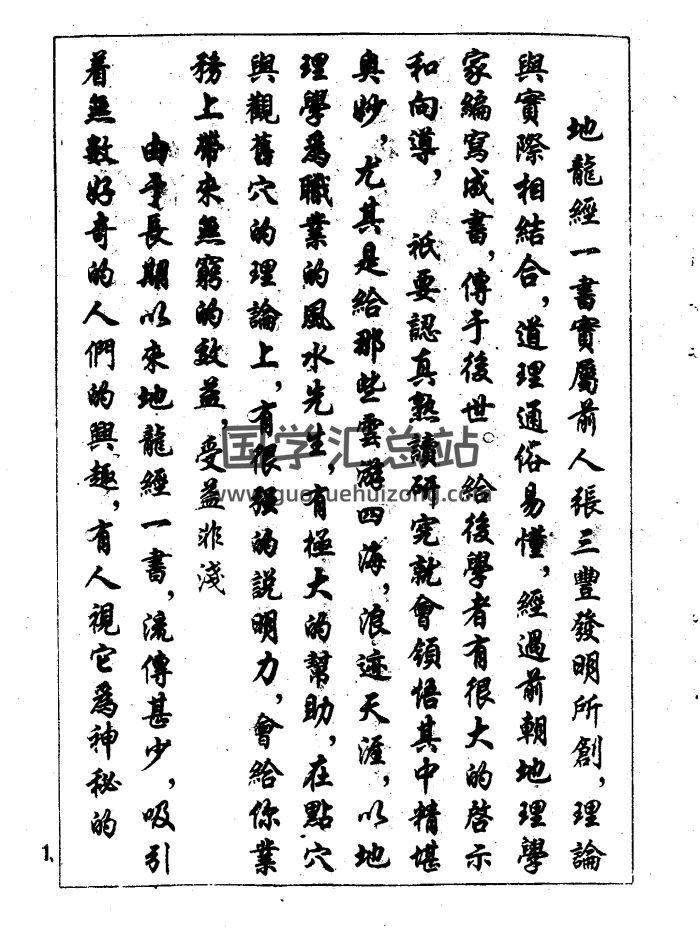 地龍經一書實屬前人張三豐發明所創，理論
與實際相結合，道理通俗易懂，經過前朝地理學
家編寫成書，傳于後世。給後學者有很大的啓示
和向導，祇要認真熟讀研究就會領悟其中精堪
奥妙，尤其是給那些雲游四海，浪迹天涯，以地
理學爲職業的風水先生，有極大的幫助，在點穴
與觀舊穴的理論上，有很强的説明力，會給你業
務上帶來無窮的效益，受益非淺
由于長期以來地龍經一書，流傳甚少，吸引
着無數好奇的人們的興趣，有人視它爲神秘的
1、
国学汇总站
www.guoxuehuizong.com